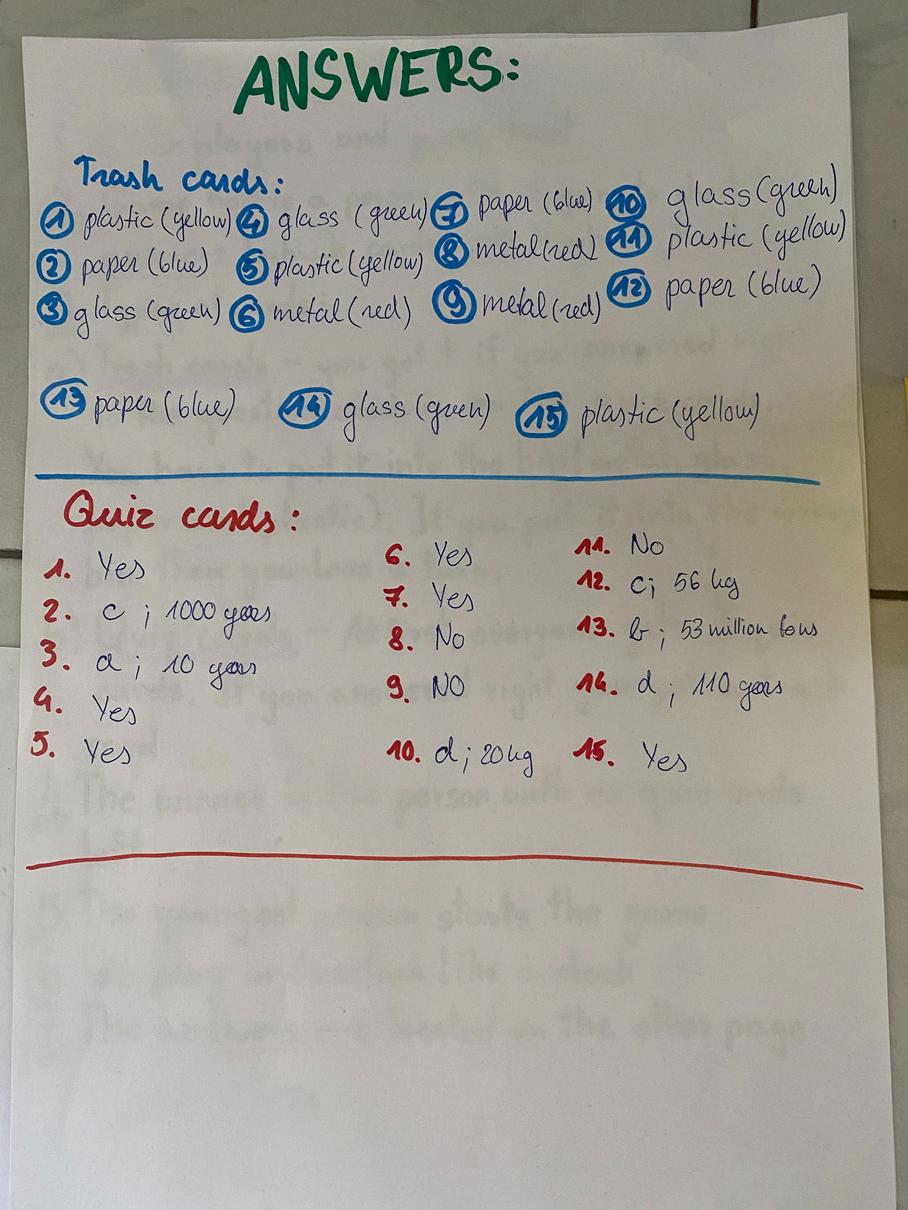 ANSWERS:
Trash cards:
1 plastic (yellow) 4 glass (green) 7 paper (blue) 10 glass (green)
2 paper (blue) 5 plastic (yellow) 8 metal (red) 11 plastic (yellow)
3 glass (green) 6 metal (red) 9 metal (red) 12 paper (blue)
13 paper (blue) 14 glass (green) 15 plastic (yellow)
Quiz cards:
1. Yes 6. Yes 11. No
2. c ; 1000 years 7. Yes 12. c; 56 kg
3. a ; 10 years 8. No 13. b ; 53 million tons
4. Yes 9. NO 14. d ; 110 years
5. Yes 10. d; 20 kg 15. Yes